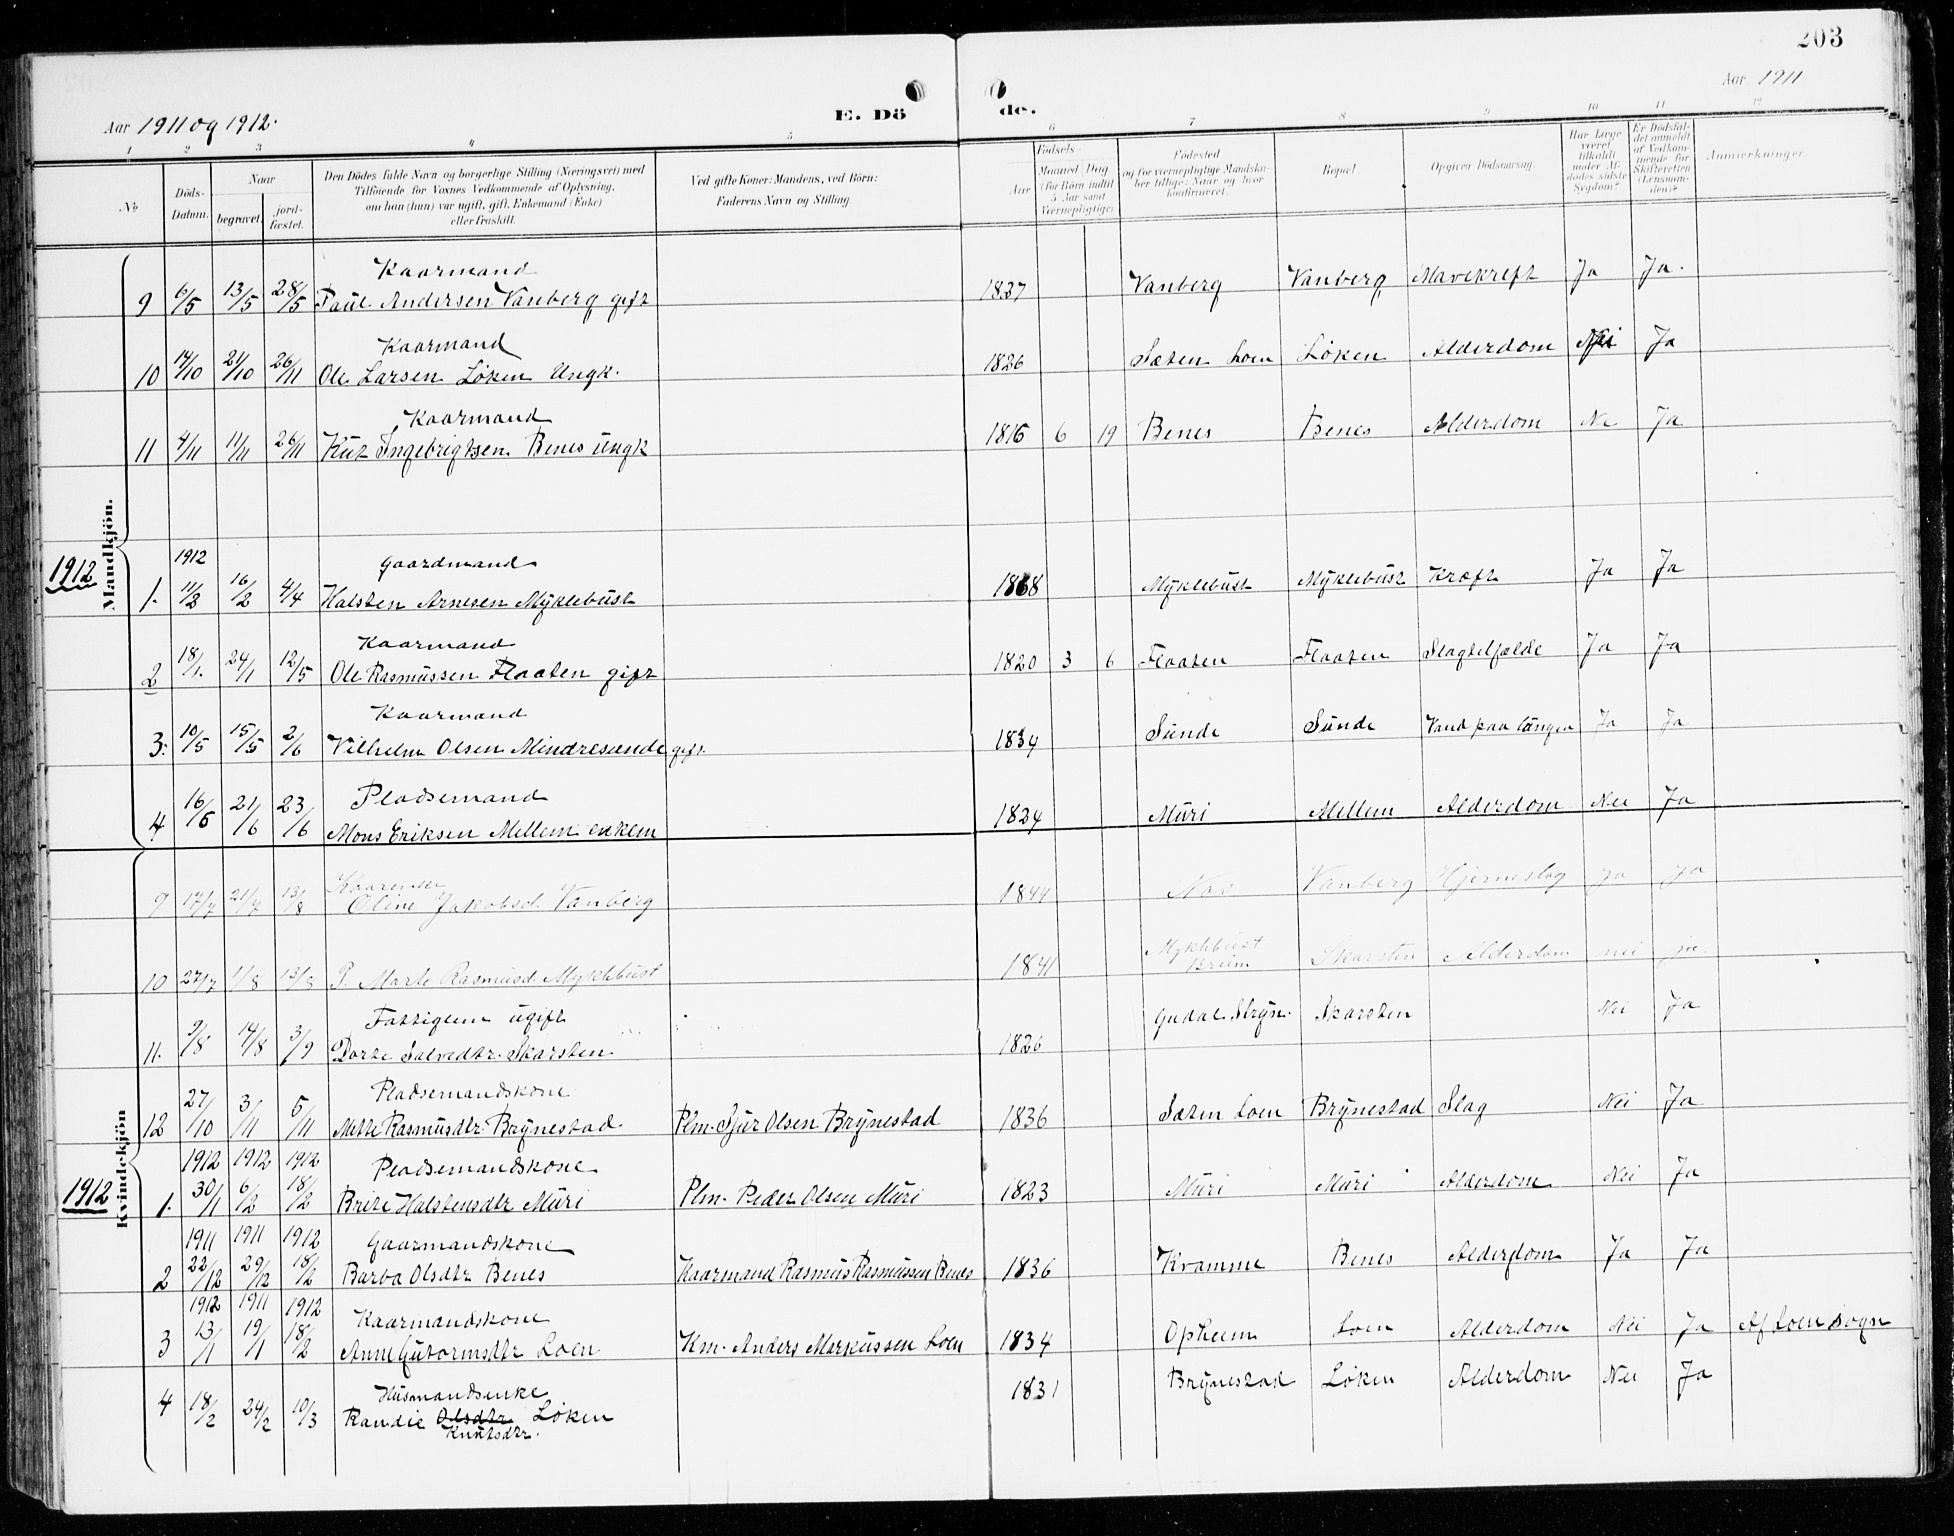 203
Aar 1911 og 1912.
E. Dö de.
Aar 1911
1 2 3 4 5 6 7 8 9 10 11 12
No
Döds-Datum.
Naar
begravet.
jord-fæstet.
Den Dödes fulde Navn og borgerlige Stilling (Næringsvei) med
Tilföiende for Voxnes Vedkommende af Oplysning,
om han (hun) var ugift, gift, Enkemand (Enke)
eller fraskilt.
Ved gifte Koner: Mandens, ved Börn:
Faderens Navn og Stilling.
Födsels-
Aar
Maaned Dag
(for Börn indtil
5 Aar samt
Værnepligtige)
Födested
og for værnepligtige Mandska-
ber tillige: Naar og hvor
konfirmeret.
Bopæl.
Opgiven Dödsaarsag.
Har Læge
været
tilkaldt
under Af-
dödes sidste
Sygdom?
Er Dödsfal-
det anmeldt
af Vedkom-
mende for
Skifteretten
(Lensman-
den)?
Anmærkninger
Mandkjön.
Kaarmand
9 6/5 13/5 28/5 Paul Andersen Vanberg gift 1837 Vanberg Vanberg Mavekreft Ja Ja.
Kaarmand
10 14/10 21/10 26/11 Ole Larsen Løken Ungk. 1826 Sæten Loen Løken Alderdom Nei Ja
Kaarmand
11 4/11 11/11 26/11 Kut Ingebrigtsen Benes ungk 1816 6 19 Benes Benes Alderdom Ne Ja
1912
1912 Gaardmand
1. 11/2 16/2 4/4 Halsten Arnesen Myklebust 1868 Myklebust Myklebust Kræft Ja Ja
Kaarmand
2 18/1. 24/1 12/5 Ole Rasmussen Flaaten gift 1820 3 6 Flaaten Flaaten Slagtilfælde Ja Ja
Kaarmand
3. 10/5 15/5 2/6 Vilhelm Olsen Mindresunde gift. 1834 Sunde Sunde Vand paa lungen Ja Ja
Pladsemand
4 16/6 21/6 23/6 Mons Eriksen Mellem enkem 1824 Muri Mellem Alderdom Nei Ja
Kvindekjön
Kaarenke
9 17/7 21/7 13/8 Oline Jakobsd. Vanberg 1844 Vanberg Hjerneslag ja ja
Myklebust
10 27/7 1/8 13/8 P. Marte Rasmusd. Myklebust 1841 Briem Skarsten Alderdom nei ja
Fattiglem ugift
11. 9/8 14/8 3/9 Dorte Salvedtr. Skarsten 1826 Gudal Stryn. Skarsten Nei Ja
Pladsemandskone
12 27/10 3/11 5/11 Mette Rasmusdtr. Brynestad Plm. Sjur Olsen Brynestad 1836 Sæten Loen Brynestad Slag Nei Ja
1912
1912 1912 1912 Pladsemandskone
1. 30/1 6/2 18/2 Brite Halstensdtr Muri Plm. Peder Olsen Muri 1823 Muri Muri Alderdom Nei Ja
1911 1911 1912 Gaarmandskone
2 22/12 29/12 18/2 Barba Olsdtr Benes Kaarmand Rasmus Rasmussen Benes 1836 Kvamme Benes Alderdom Ja Ja
1912 1911 1912 Kaarmandskone
3 13/1 19/1 18/2 Anne Gutormsdtr Loen Km. Anders Markussen Loen 1834 Opheim Loen Alderdom Nei Ja Af Loen sogn
Husmandsenke
4 18/2 24/2 10/3 Randie Olsdtr Løken 1831 Brynestad Løken Alderdom Nei Ja
Knutsdtr.